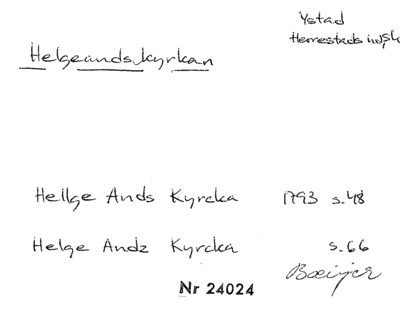 Ystad
Herrestads
Helgeands.kyrkan
Hellge Ands Kyrcka 1793 s.48
Helge Andz Kyrcka s.66
Nr 24024